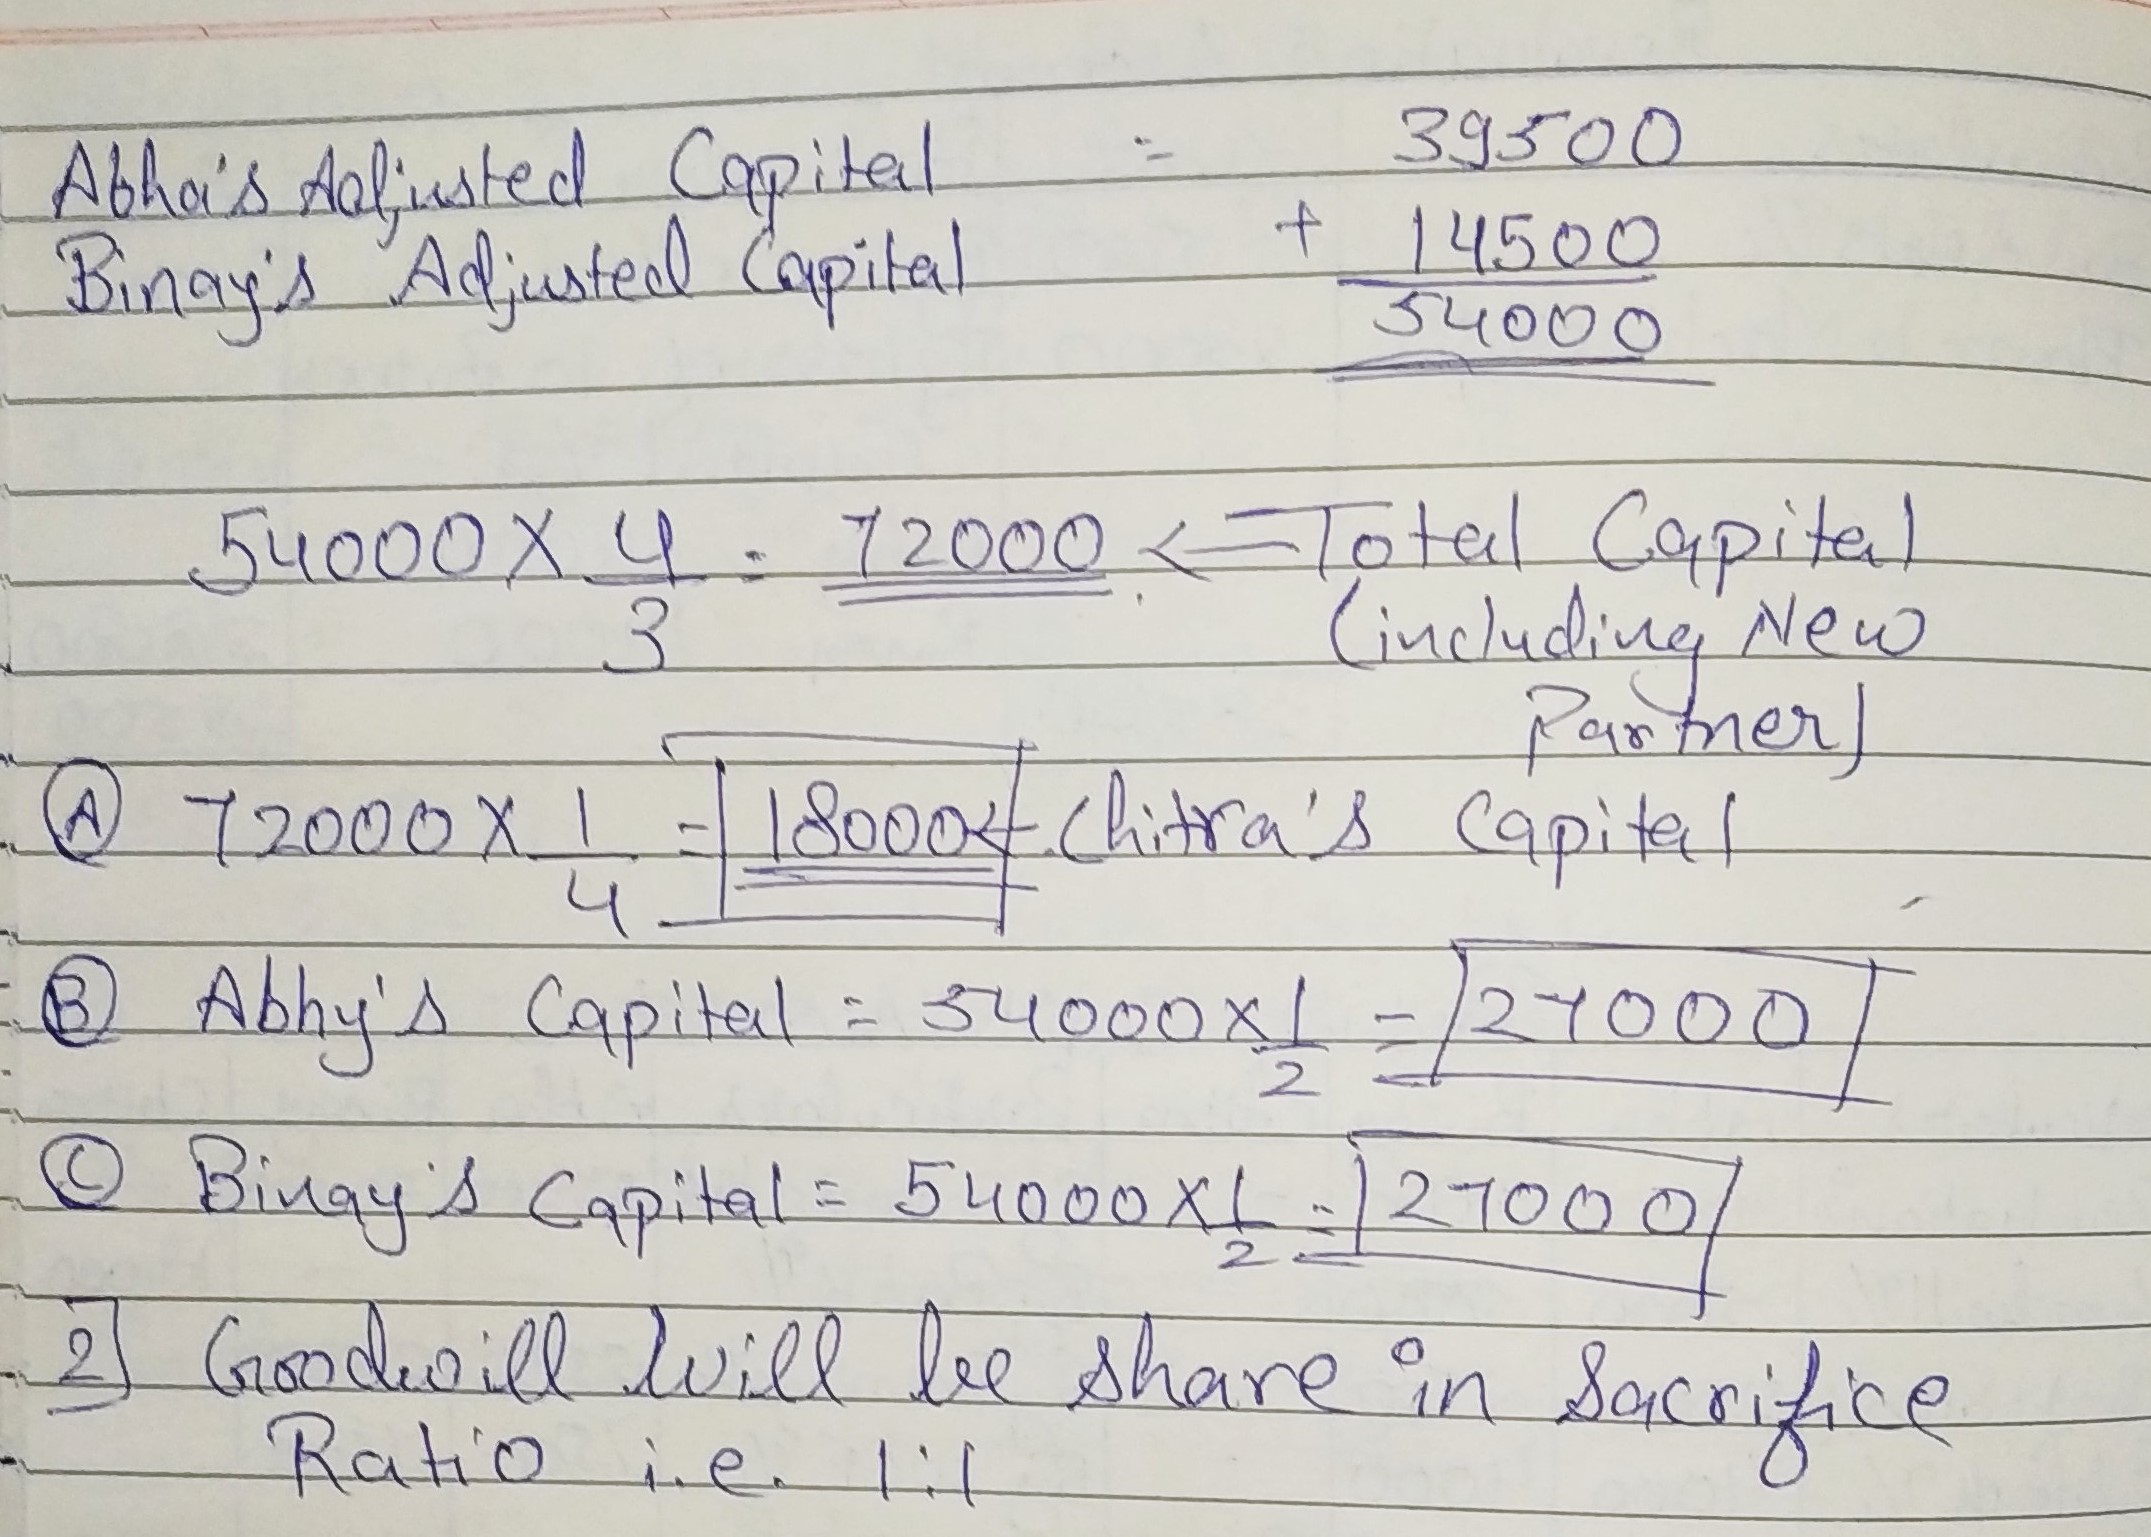 Abha's Adjusted Capital = 39500
Binay's Adjusted Capital + 14500
54000
54000 X 4/3 = 72000 <= Total Capital
(including New
Partner)
(A) 72000 X 1/4 = 18000 ← Chitra's Capital
(B) Abhy's Capital = 54000 x 1/2 = 27000
(C) Binay's Capital = 54000 X 1/2 = 27000
2] Goodwill will be share in Sacrifice
Ratio i.e. 1:1